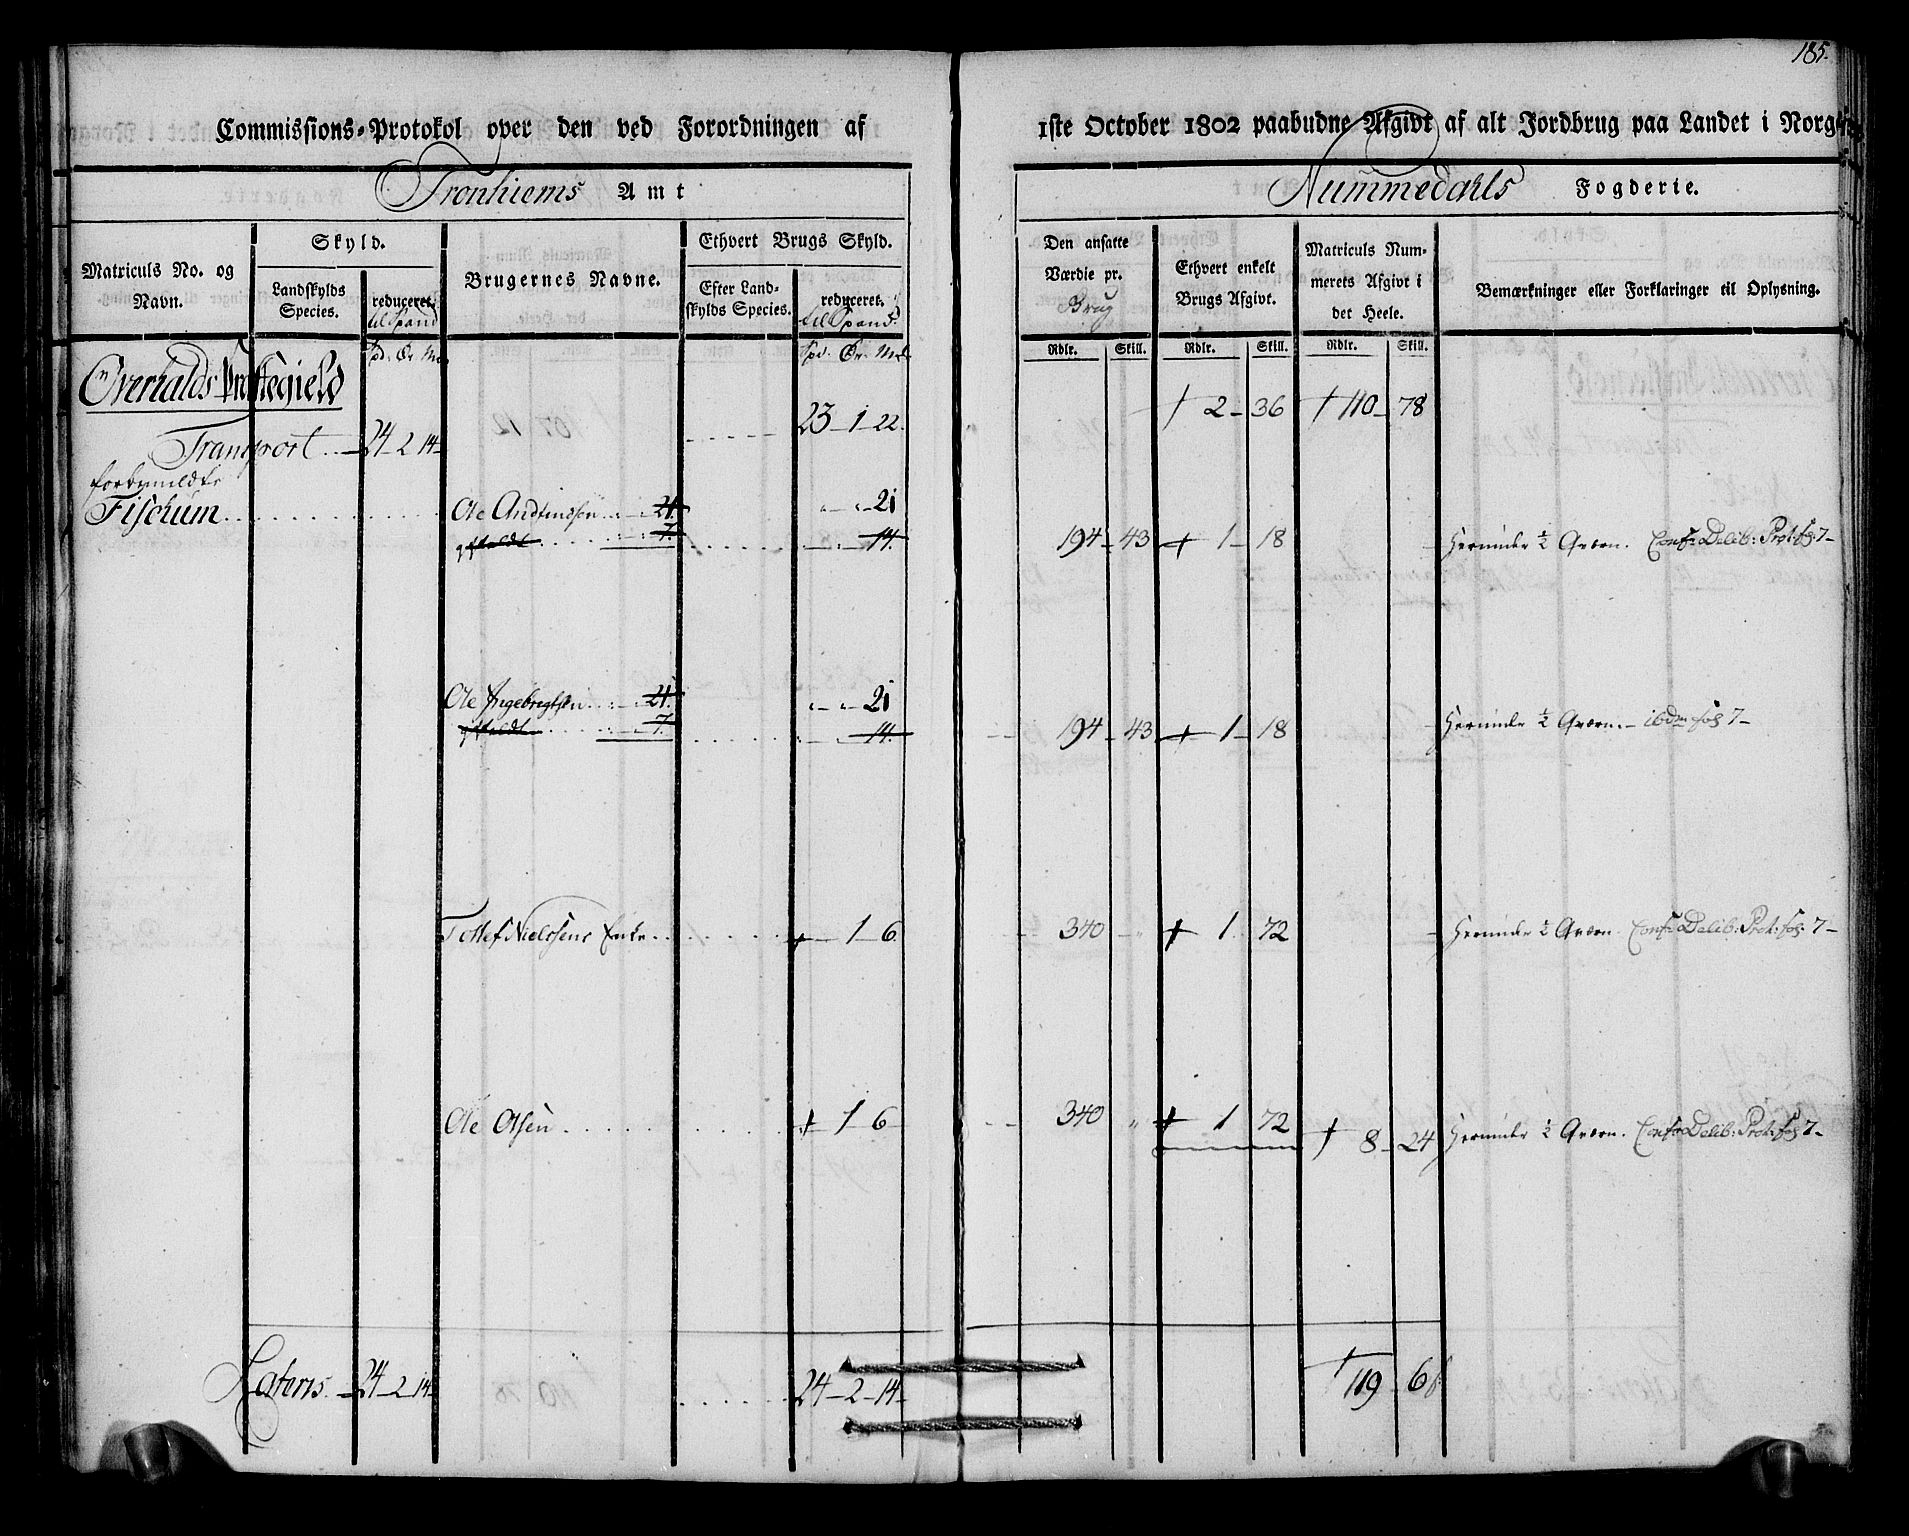 185.
Commissions-Protokol over den ved Forordningen af 1ste October 1802 paabudne Afgivt af alt Jordbrug paa Landet i Norge
Tronhiems Amt
Nummedahls Fogderie.
Matriculs No. og Navn.
Skyld.
Landskylds Species.
reduceret. til Spand
Brugernes Navne.
Ethvert Brugs Skyld.
Efter Landskylds Species.
reduceret. til Spand.
Den ansatte Værdie pr. Brug
Ethvert enkelt Brugs Afgivt.
Matriculs Nummerets Afgivt i det Heele.
Bemærkninger eller Forklaringer til Oplysning.
Spd. Ør. Mk. Spd. Ør. Mk. Rdlr. Skill. Rdlr. Skill. Rdlr. Skill.
Overhalds Præstegield
Transport 24 - 2 - 14 23 - 1 - 22 † 2 - 36 † 110 - 78
forbemeldte
Fischum Ole Andreassen 21. 21
7. 14. 194 - 43 + 1 - 18 Herunder ½ Qværn. Conf: Delib: Prot: fol: 7
Ole Ingebrigtsen 21. 21
7. 14. 194 - 43 + 1 - 18 Herunder ½ Qværn. ibdm fol 7
Tollef Nielsens Enke + 1 - 6 340 + 1 - 72 Herunder ½ Qværn. Conf: Delib: Prot: fol: 7
Ole Olsen + 1 - 6 340 " + 1 - 72 † 8 - 24 Herunder ½ Qværn. Conf: Delib: Prot: fol 7
Lateris 24 - 2 - 14 24 - 2 - 14 † 119 - 6